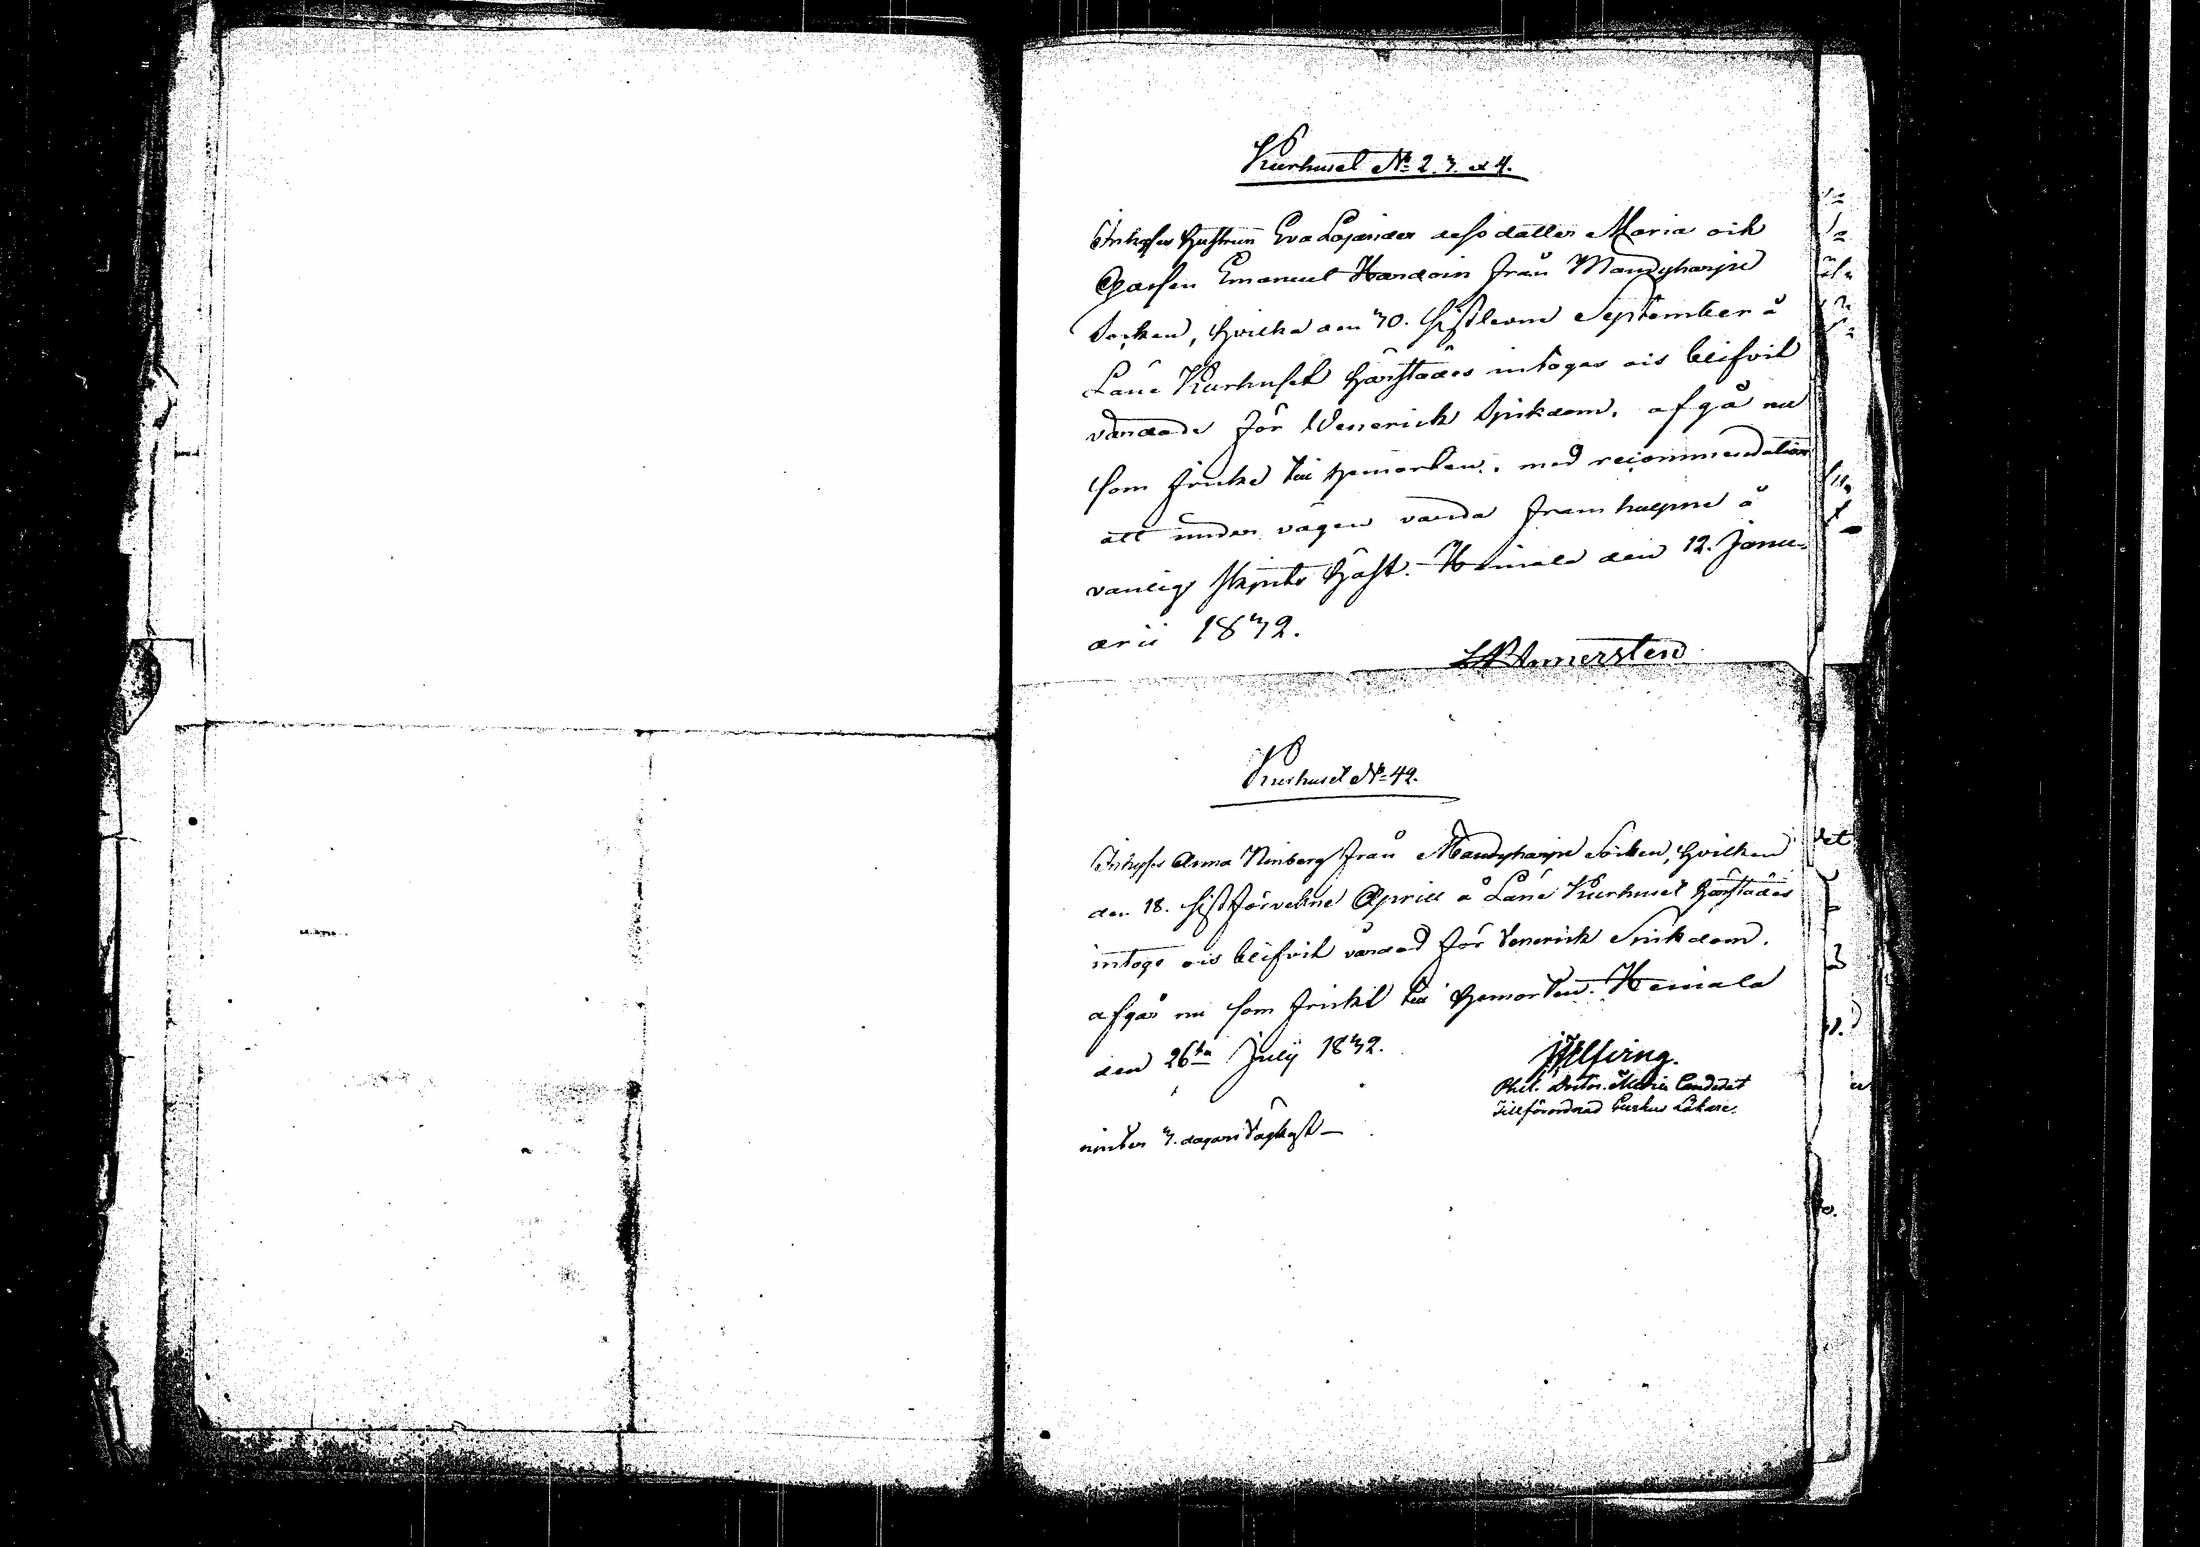 Kurhuset No 2. 3. et 4.
Inhyses Hustrun Eva Lojander dess dotter Maria och
Gossen Emanuel Handoin från Mandyharju
Socken, hvilka den 30. sistledne September å
Läne Kurhuset härstädes intogos och blifvit
vårdade för Venerisk Sjukdom, afgå nu
som friske till hemorten, med recommendation
att under vägen varda framhulpne å
vanlig skjuts häst. Heinola den 12. Janu-
arii 1832.
Kurhuset No 42.
Inhyses Anna Ninberg från Mandyharju Socken, hvilken
den 18. sistförvekne Aprill å Läne Kurhuset härstädes
intogs och blifvit vårdad för Venerisk Sjukdom,
afgår nu som friskt till hemorten. Heinola
den 26ta Julÿ 1832.
Phil. Doctor. Medic. Candidat
Tillförordnad Curhus Läkare.
niuter 3. dagars vägkost —